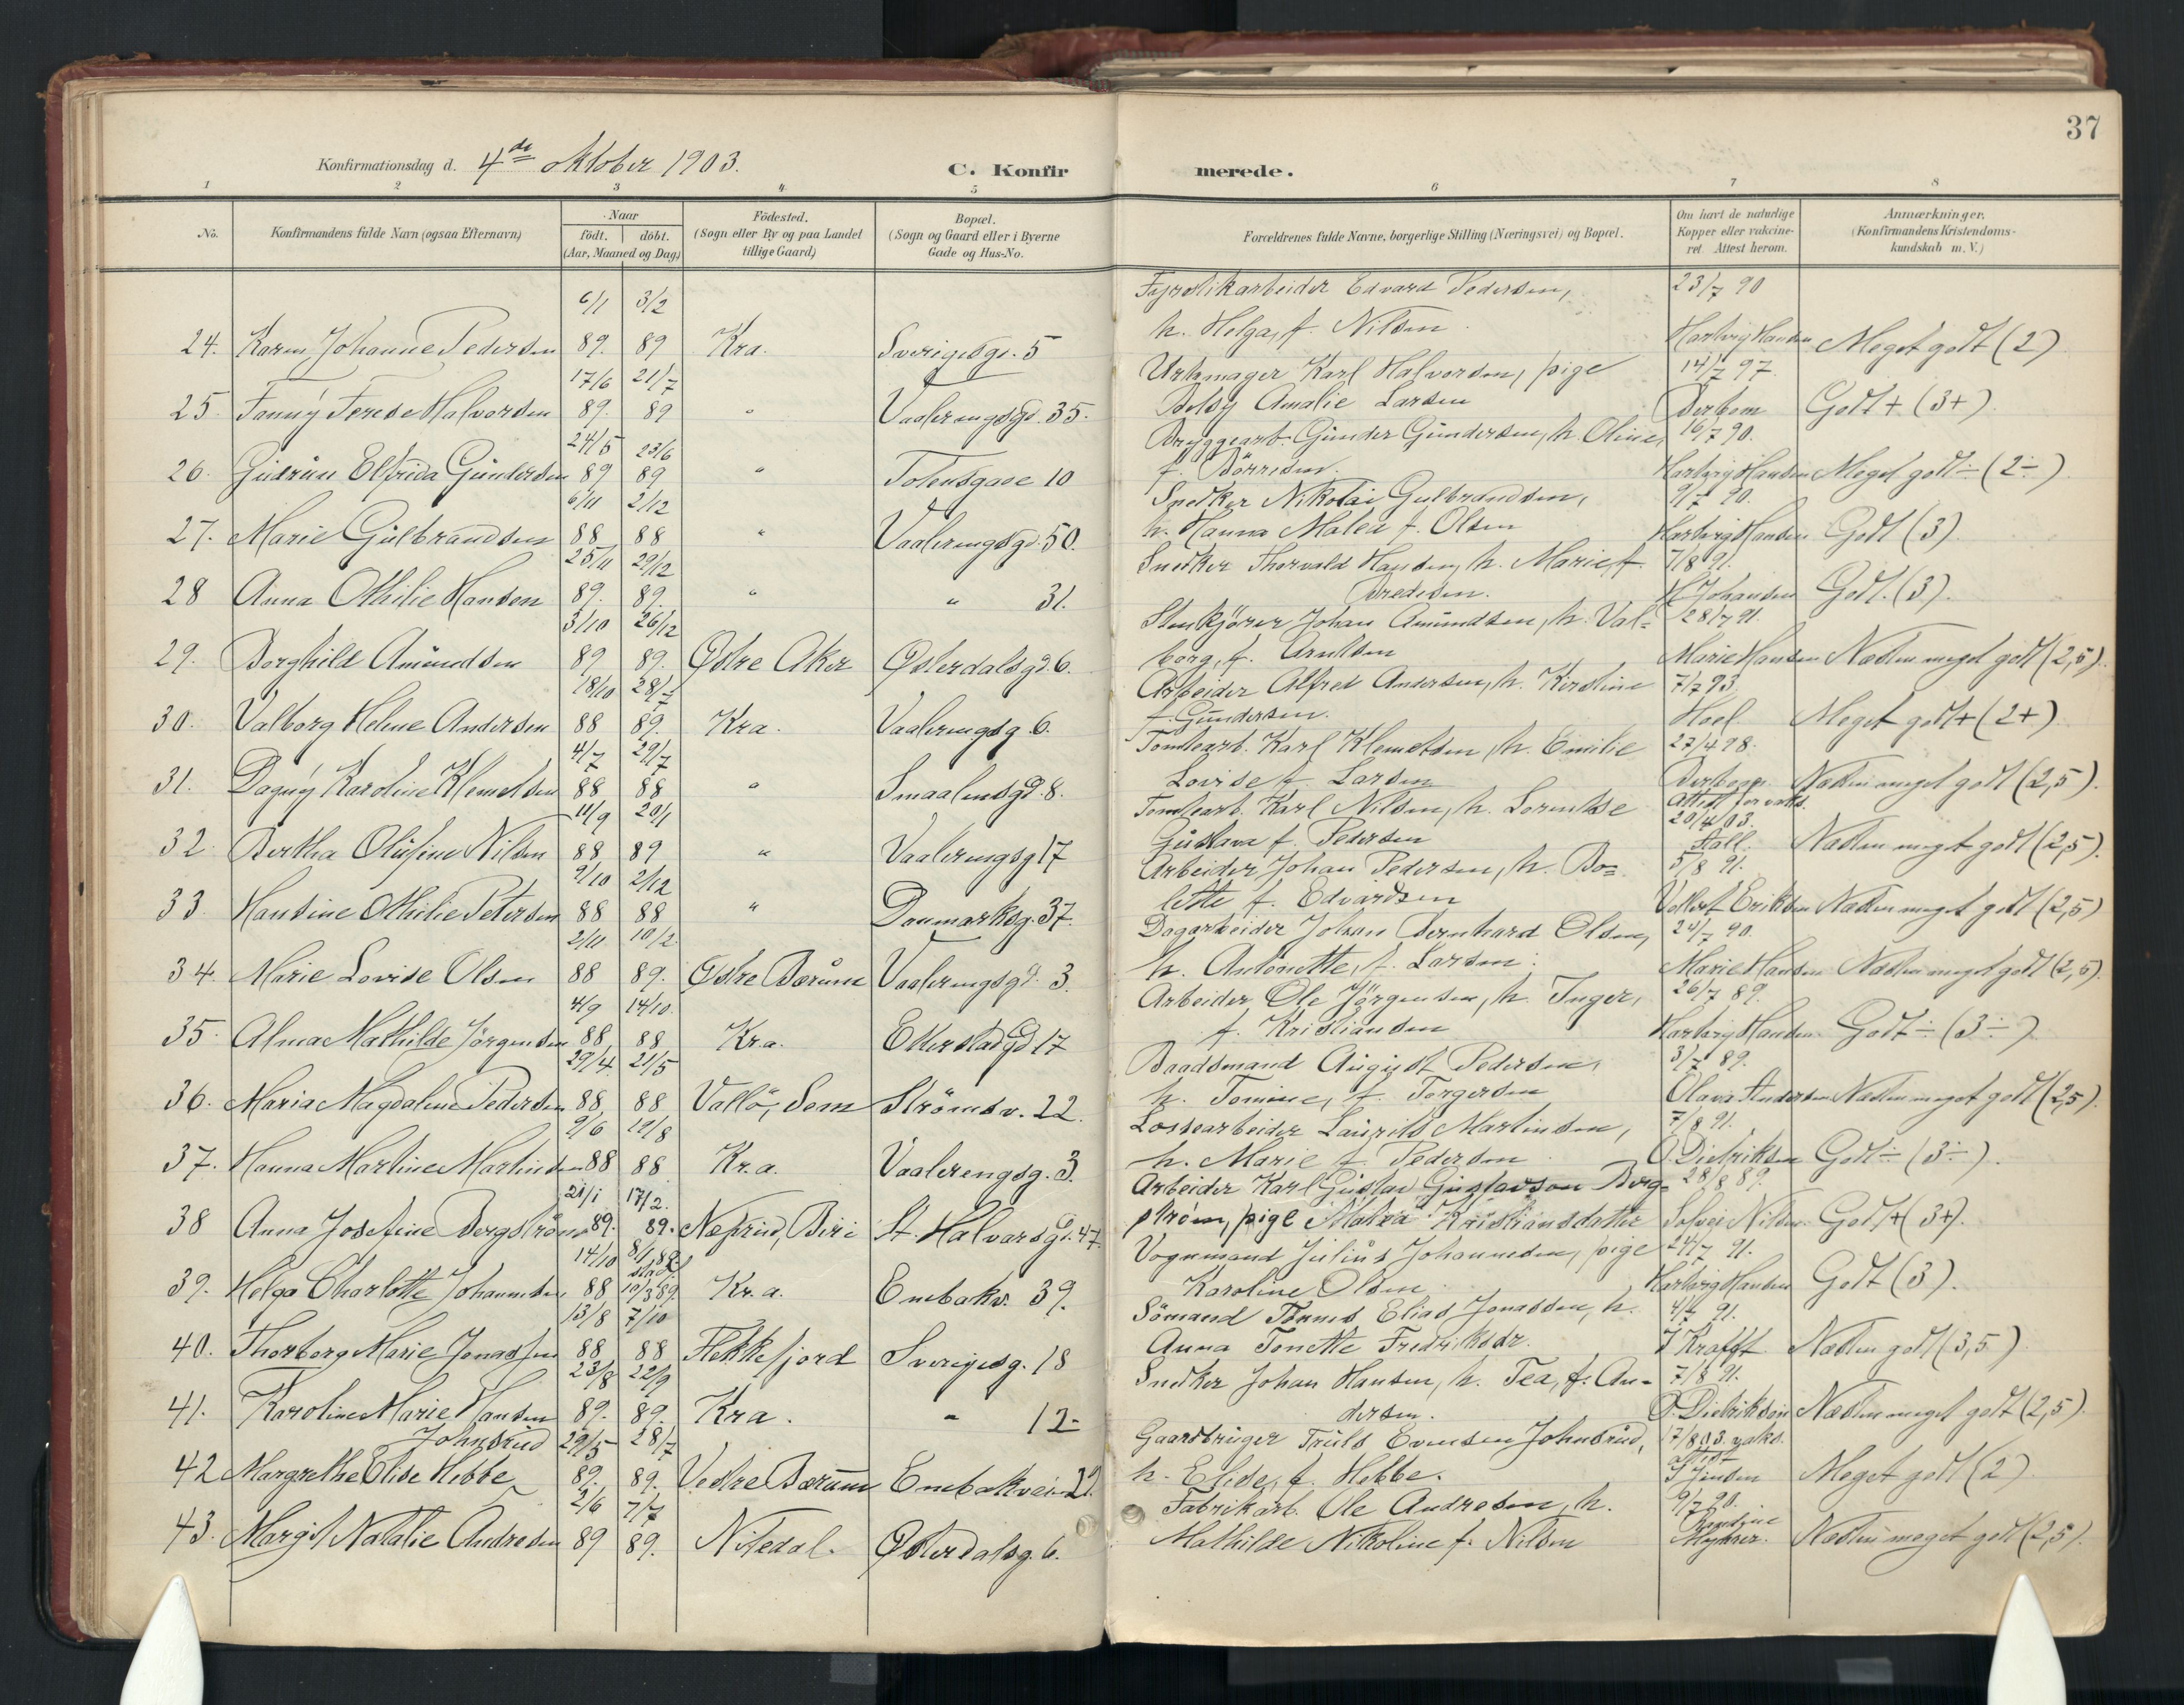 37
Konfirmationsdag d. 4de oktober 1903.
C. Konfirmerede.
1 2 3 4 5 6 7 8
No.
Konfirmandens fulde Navn (ogsaa Efternavn)
Naar
födt. döbt.
(Aar, Maaned og Dag)
Födested.
(Sogn eller By og paa Landet
tillige Gaard)
Bopæl.
(Sogn og Gaard eller i Byerne
Gade og Hus-No.
Forældrenes fulde Navne, borgerlige Stilling (Næringsvei) og Bopæl.
Om havt de naturlige
Kopper eller vakcine-
ret. Attest herom.
Anmærkninger.
(Konfirmandens Kristendoms-
kundskab m. V.)
6/1 3/2 arbeider Edvard Pedersen, 23/7 90
24. Karen Johanne Pedersen 89. 89 Kra. Sverigesgd. 5 h. Helga, f. Nilsen Hartvig Hansen Meget godt (2)
17/6 21/7 Urtemager Karl Halvorsen, pige 14/7 97.
25 Fanny Terese Halvorsen 89. 89 " Vaalerengsgd. 35. Betsy Amalie Larsen Berbom Godt + (3+)
24/5 23/6 Bryggearb. Gunder Gundersen, h. Oline, 16/7 90.
26. Gudrun Elfrida Gundersen 89 89 " Totensgade 10 f. Börresen. Hartvig Hansen Meget godt ÷ (2÷)
6/11 2/12 Snedker Nikolai Gulbrandsen, 9/7 90.
27. Marie Gulbrandsen 88 88 " Vaalerengsgd. 50. h. Hanna Malea f. Olsen Hartvig Hansen Godt (3)
25/11 29/12 Snedker Thorvald Hansen, h. Marie, f. 7/8 91.
28 Anna Othilie Hansen 89. 89. " " 31. Bredesen. Johansen Godt. (3).
3/10 26/12 Stenkjörer Johan Amundsen, h. Val= 28/7 91.
29. Borghild Amundsen 89 89. Østre Aker Østerdalsgd. 6. borg, f. Arntsen Marie Hansen Næsten meget godt (2,5).
18/10 28/7 Arbeider Alfred Andersen, h. Kirstine 7/7 93
30. Valborg Helene Andersen 88 89. Kra. Vaalerengsg. 6. f. Gundersen. Hoel. Meget godt + (2+)
4/7 29/7 Tomtearb. Karl Klemetsen, h. Emilie 27/4 98.
31. Dagny Karoline Klemetsen 88 88 " Smaalensgd. 8. Lovise f. Larsen Næsten meget godt (2,5).
11/9 20/1 Tomtearb. Karl Nilsen, h. Lorentse Attest for vaks. 20/4 03.
32 Bertha Olufine Nilsen 88 89 " Vaalerengsg 17 Gustava f. Pedersen Stall. Næsten meget godt (2,5).
9/10 2/12 Arbeider Johan Pedersen, h. Bo= 5/8 91.
33. Hansine Othilie Petersen 88 88 " Danmarksg. 37. lette f. Edvardsen Volbert Eriksen Næsten meget godt (2,5)
2/11 10/2. Dagarbeider Johan Bernhard Olsen, 24/7 90.
34. Marie Lovise Olsen 88 89. Østre Bærum Vaalerengsgd. 3. h. Antonette, f. Larsen. Marie Hansen Næsten meget godt (2,5).
4/9 14/10. Arbeider Ole Jörgensen, h. Inger, 26/7 89.
35. Alma Mathilde Jörgensen 88 88 Kr.a. Etterstadgd 17 f. Kristiansen Hartvig Hansen Godt ÷ (3÷)
29/4. 21/5 Baadsmand August Pedersen, 3/7 89.
36. Maria Magdalene Pedersen 88 88 Vallö, Sem Strömsv. 22. h. Tomine, f. Torgersen Olava Andersen Næsten meget godt (2,5).
9/6 19/8 Lossearbeider Laurits Martinsen, 7/8 91.
37. Hanna Martine Martinsen 88 88 Kr.a. Vaalerengsg. 3. h. Marie f. Pedersen O. Diedriksen Godt ÷ (3÷)
21/1 17/2. Arbeider Karl Gustav Gustavson Berg- 28/8 89.
38 Anna Josefine Bergström 89. 89. , Biri St. Halvardsgd. 47. ström, pige Matea Kristiansdatter Solvei Nilsen Godt + (3+).
14/10 8/1 89 stadf. Vognmand Julius Johannesen, pige 24/7 91.
39. Helga Charlotte Johannesen 88 10/3 89. Kr. a. Enebakv. 39. Karoline Olsen Hartvig Hansen Godt (3).
13/8 7/10 Sömand Tönnes Elias Jonassen, h. 4/7 91.
40. Thorborg Marie Jonassen 88 88 Flekkefjord Sverigesg. 18 Anna Tonette Fredriksdr. J Krafft Næsten godt (3,5)
23/8 22/9 Snedker Johan Hansen, h. Tea, f. An- 7/8 91.
41. Karoline Marie Hansen 89. 89. Kra. " 12 dersen. O. Diedriksen Næsten meget godt (2,5).
Johnsrud 29/5 28/7 Gaardbruger Truls Evensen Johnsrud, 17/8 03. vaks. attest
42 Margrethe Elise Hebbe 89. 89. Vestre Bærum Enebakvei 29. h. Elise, f. Hebbe. Jensen Meget godt (2)
2/6 7/7 Fabrikarb. Ole Andresen, h. 9/7 90.
43. Margit Natalie Andresen 89 89. Nitedal. Østerdalsg. 6. Mathilde Nikoline f. Nilsen Myhrer. Næsten meget godt (2,5).